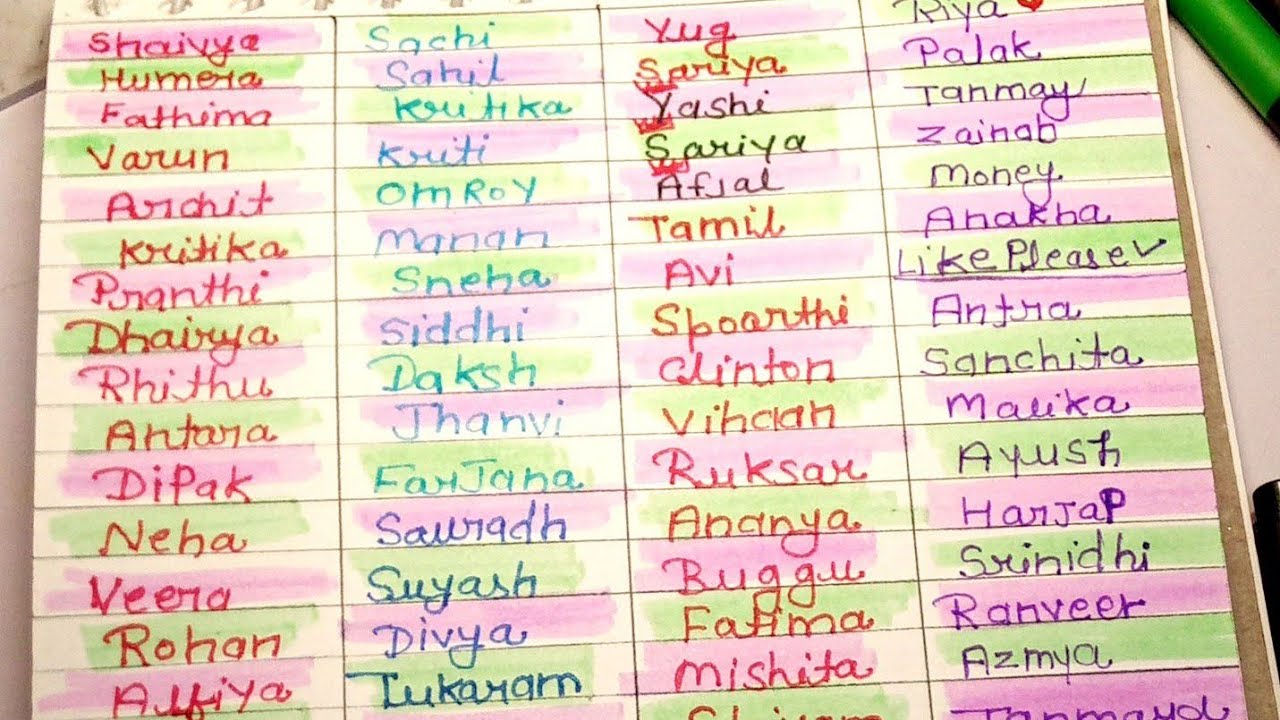 Shaivya
Humera
Fathima
Varun
Archit
Kritika
Pranthi
Dhairya
Rhithu
Antara
Dipak
Neha
Veera
Rohan
Alfiya
Sachi
Sahil
Kritika
Kriti
Om Roy
Manan
Sneha
Siddhi
Daksh
Jhanvi
FarJana
Sauradh
Suyash
Divya
Tukaram
Yug
Sariya
Yashi
Sariya
Afjal
Tamil
Avi
Spoorthi
Clinton
Vihaan
Ruksar
Ananya
Buggu
Fatima
Mishita
Shivam
Riya
Palak
Tanmay
Zainab
Money
Anakha
Like Please
Antra
Sanchita
Malika
Ayush
HarJap
Srinidhi
Ranveer
Azmya